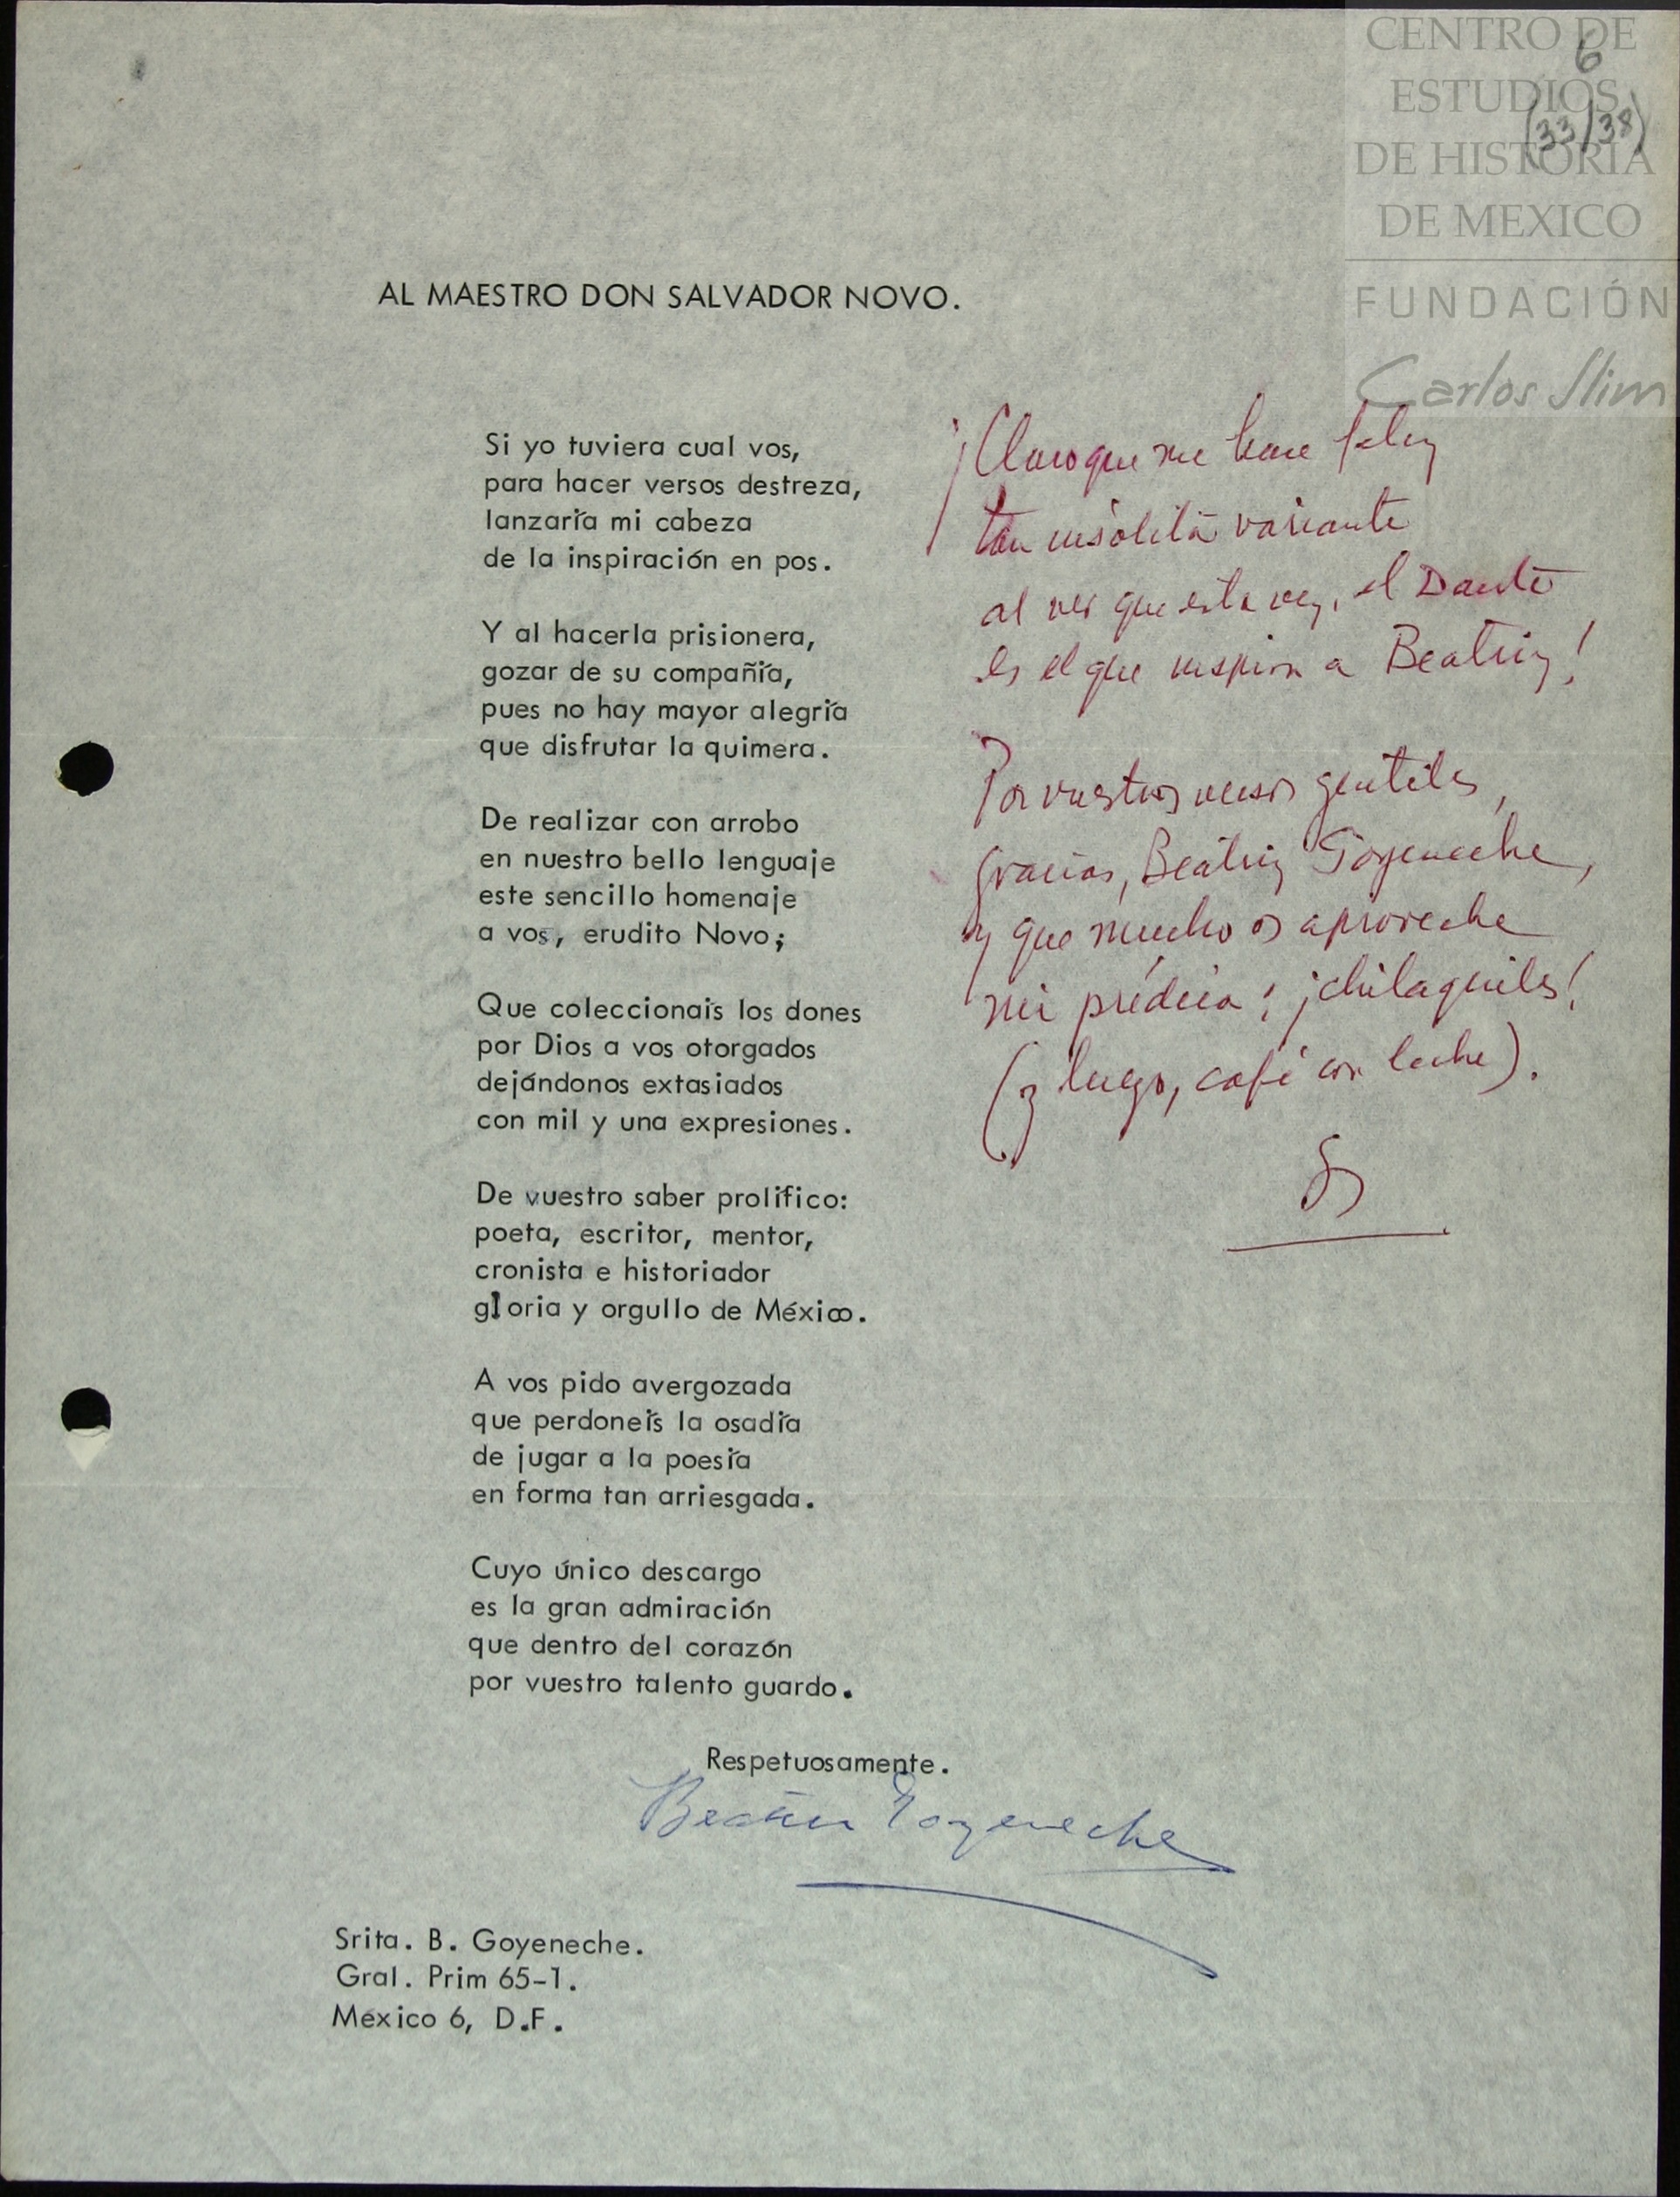 CENTRO DE
ESTUDIOS
DE HISTORIA
DE MEXICO
FUNDACIÓN
Carlos Slim
6
(33/38)
AL MAESTRO DON SALVADOR NOVO.
Si yo tuviera cual vos,
para hacer versos destreza,
lanzaría mi cabeza
de la inspiración en pos.
Y al hacerla prisionera,
gozar de su compañía,
pues no hay mayor alegría
que disfrutar la quimera.
De realizar con arrobo
en nuestro bello lenguaje
este sencillo homenaje
a vos, erudito Novo;
Que coleccionaís los dones
por Dios a vos otorgados
dejándonos extasiados
con mil y una expresiones.
De vuestro saber prolífico:
poeta, escritor, mentor,
cronista e historiador
gloria y orgullo de México.
A vos pido avergozada
que perdoneís la osadía
de jugar a la poesía
en forma tan arriesgada.
Cuyo único descargo
es la gran admiración
que dentro del corazón
por vuestro talento guardo.
Respetuosamente.
Beatriz Goyeneche
Srita. B. Goyeneche.
Gral. Prim 65-1.
México 6, D.F.
¡Claro que me hace feliz
tan insólita variante
al ver que esta vez, el Dante
es el que inspira a Beatriz!
Por vuestros versos gentiles,
gracias, Beatriz Goyeneche,
y que mucho os aproveche
mi prédica: ¡chilaquiles!
(y luego, café con leche).